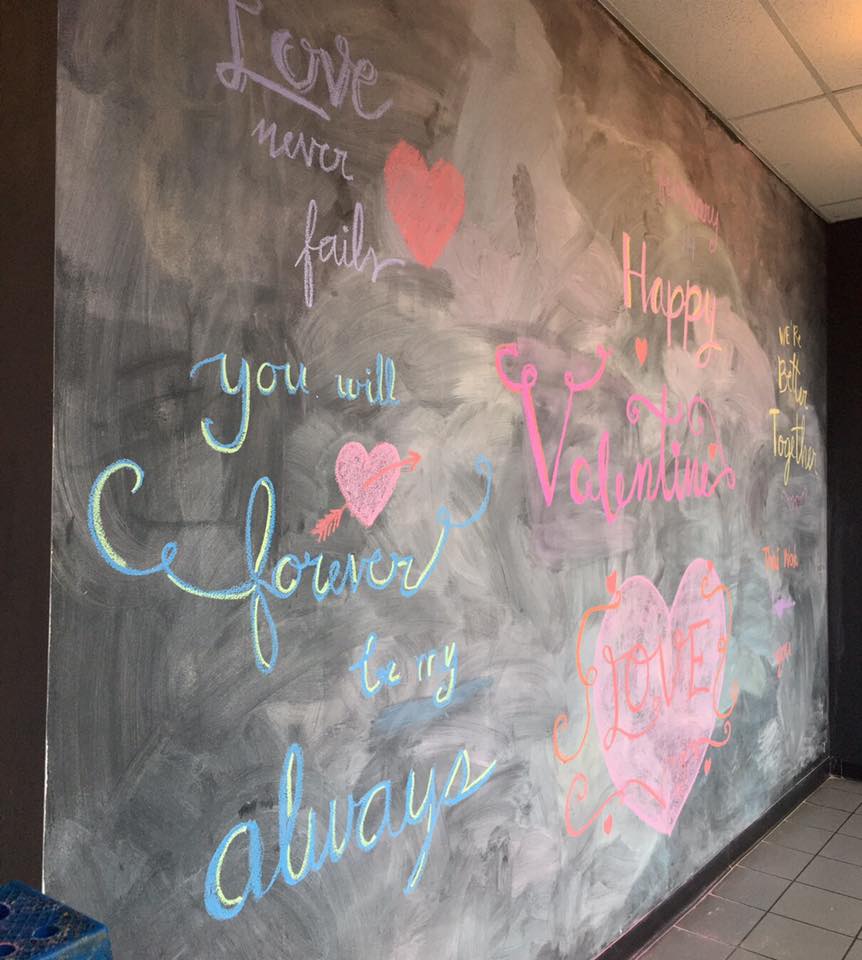 Love
never
fails
you will
forever
be my
always
Happy
Valentines
LOVE
WE'RE
Better
Together
you